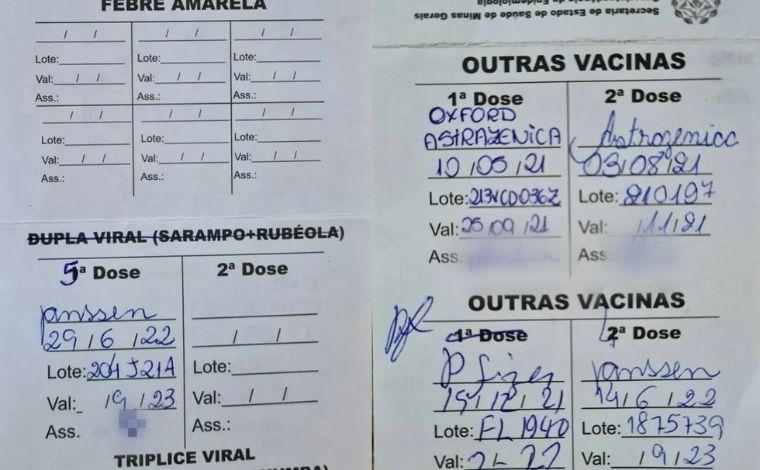 FEBRE AMARELA
/ / / / / /
Lote: Lote: Lote:
Val: / / Val: / / Val: / /
Ass.: Ass.: Ass.:
/ / / / / /
Lote: Lote: Lote:
Val: / / Val: / / Val: / /
Ass.: Ass.: Ass.:
DUPLA VIRAL (SARAMPO+RUBÉOLA)
5ª Dose 2ª Dose
Janssen
29/6/22 / /
Lote: 204J21A Lote:
Val: /9/23 Val: / /
Ass. Ass.:
TRIPLICE VIRAL
Secretaria de Estado de Saúde de Minas Gerais
de Epidemiologia
OUTRAS VACINAS
1ª Dose 2ª Dose
OXFORD
ASTRAZENICA Astrazenica
10/05/21 03/08/21
Lote: 213VCD036Z Lote: 210197
Val: 25/09/21 Val: /11/21
Ass: Ass
OUTRAS VACINAS
1ª Dose 2ª Dose
Pfizer Janssen
15/12/21 14/6/22
Lote: FL1940 Lote: 1875739
Val: 2-22 Val: /9/23